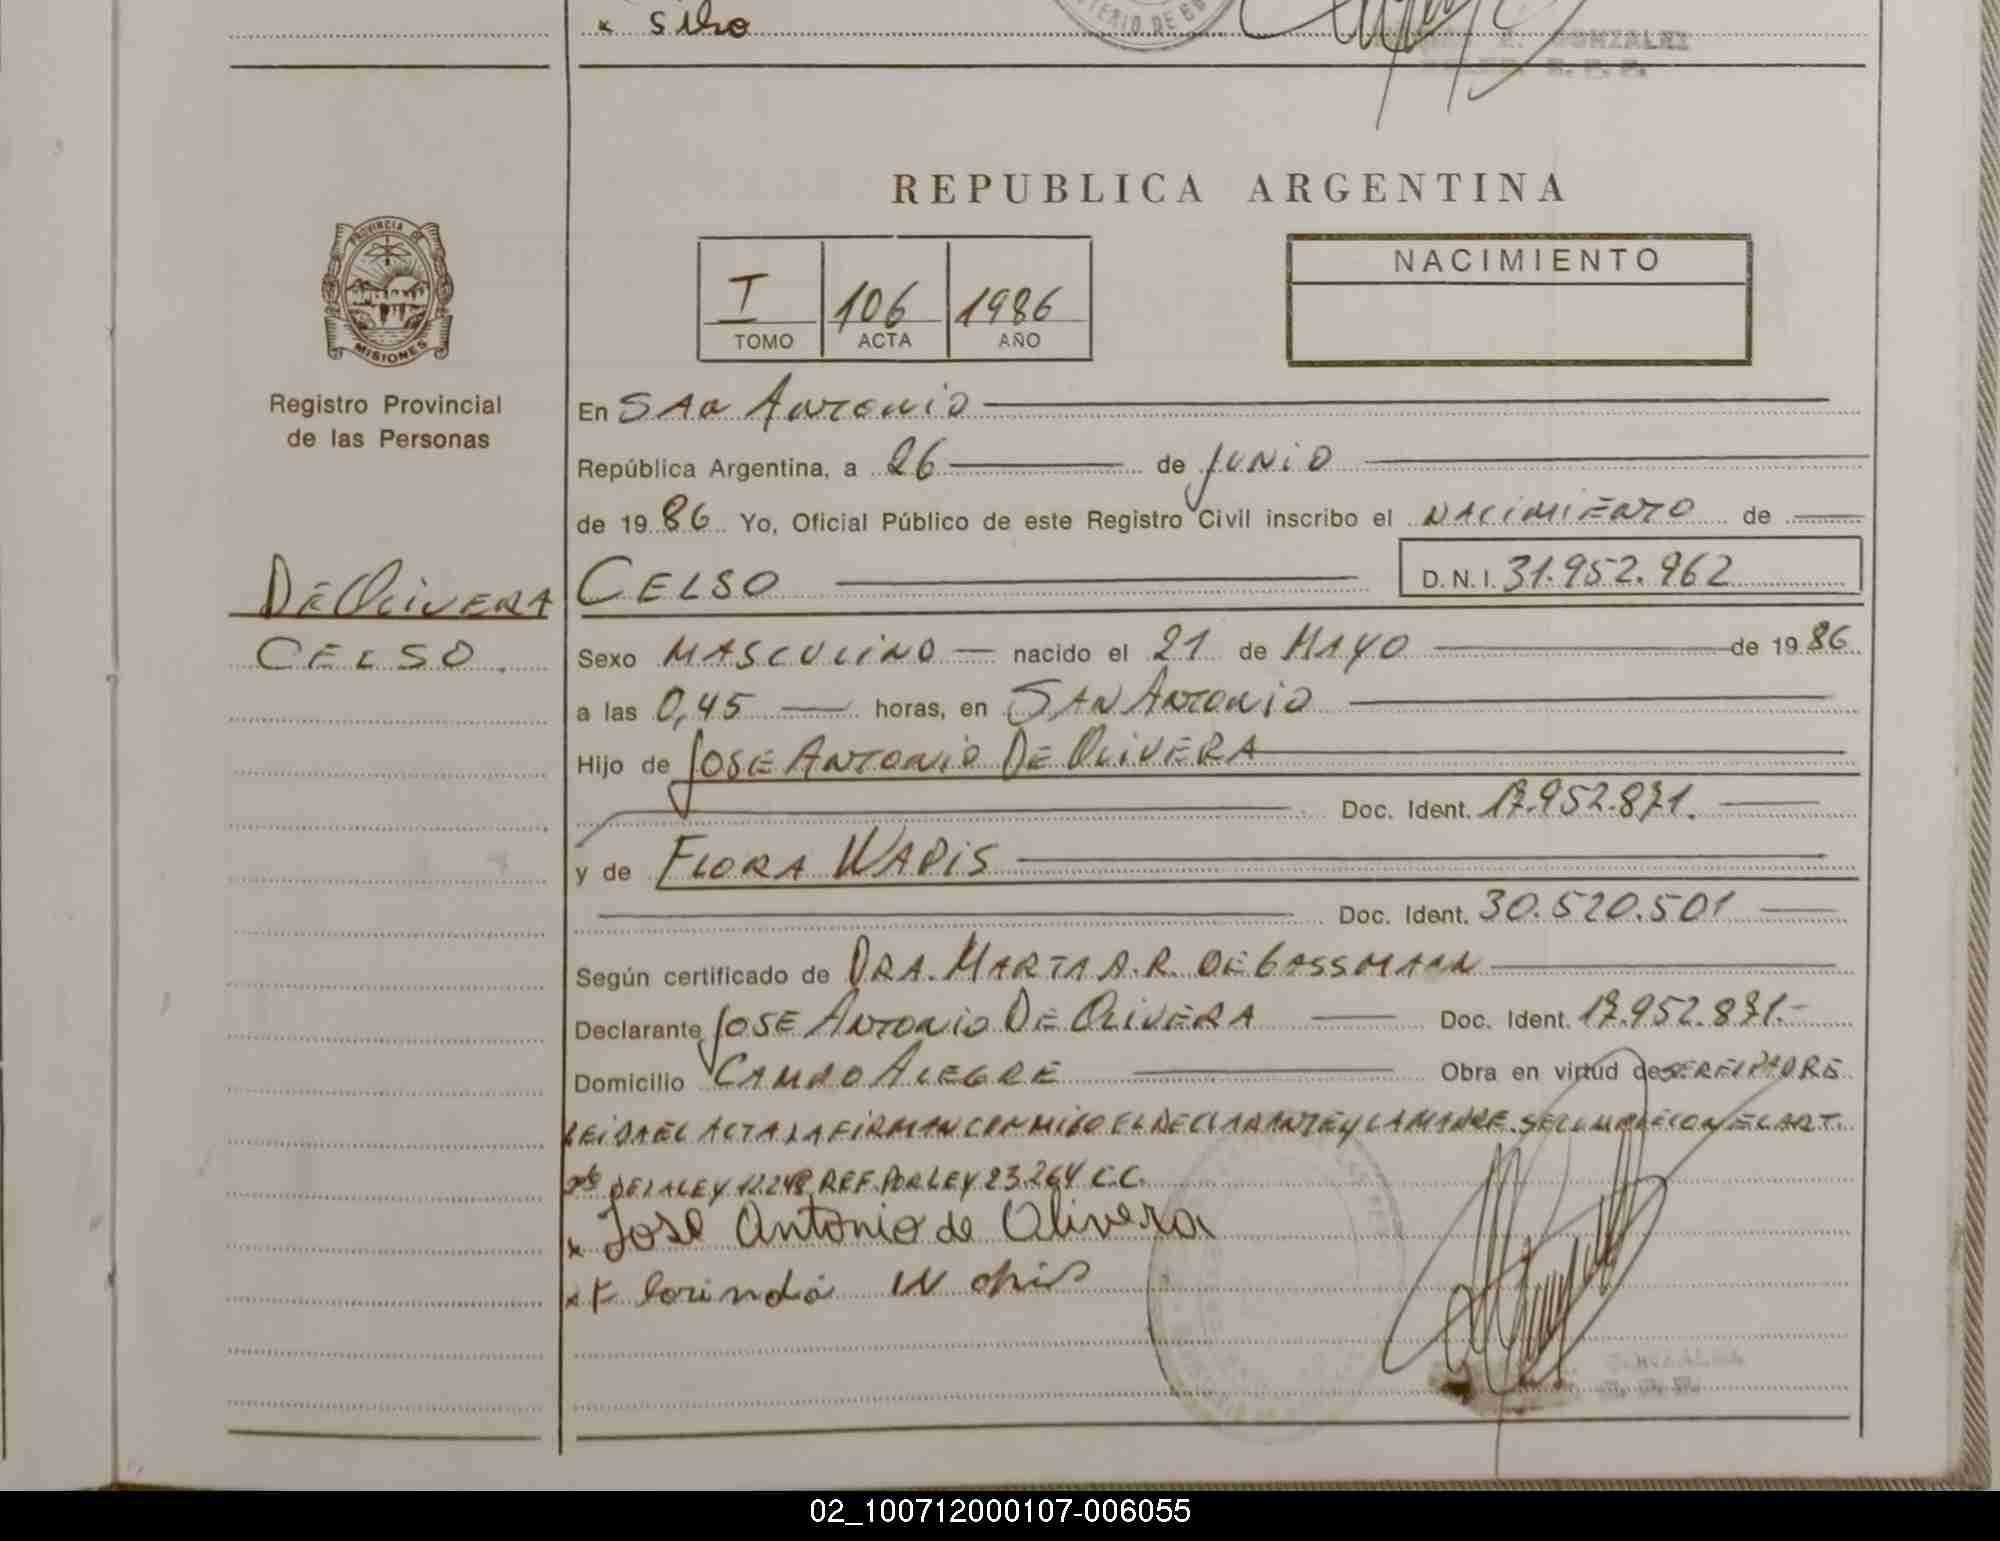 x Silvo
MINISTERIO DE GO
GONZALEZ
REPUBLICA ARGENTINA
PROVINCIA DE
MISIONES
I 106 1986
TOMO ACTA AÑO
NACIMIENTO
Registro Provincial
de las Personas
En SAN ANTONIO
República Argentina, a 26 de JUNIO
de 19 86 Yo, Oficial Público de este Registro Civil inscribo el NACIMIENTO de
DE OLIVERA
CELSO
CELSO D.N.I. 31.952.962
Sexo MASCULINO nacido el 21 de MAYO de 19 86
a las 0,45 horas, en SAN ANTONIO
Hijo de JOSE ANTONIO DE OLIVERA
Doc. Ident. 17.952.871.
y de FLORA WAPIS
Doc. Ident. 30.520.501
Según certificado de DRA. MARTA A.R. DE GASSMANN
Declarante JOSE ANTONIO DE OLIVERA Doc. Ident. 17.952.871.-
Domicilio CAMPO ALEGRE Obra en virtud de SER EL PADRE
LEIDA EL ACTA LA FIRMAN CONMIGO EL DECLARANTE Y LA MADRE. SE CUMPLE CON EL ART.
DE LA LEY 12.248 REF. POR LEY 23.264 C.C.
x José Antonio de Olivera
x Florinda Wapis
02_100712000107-006055